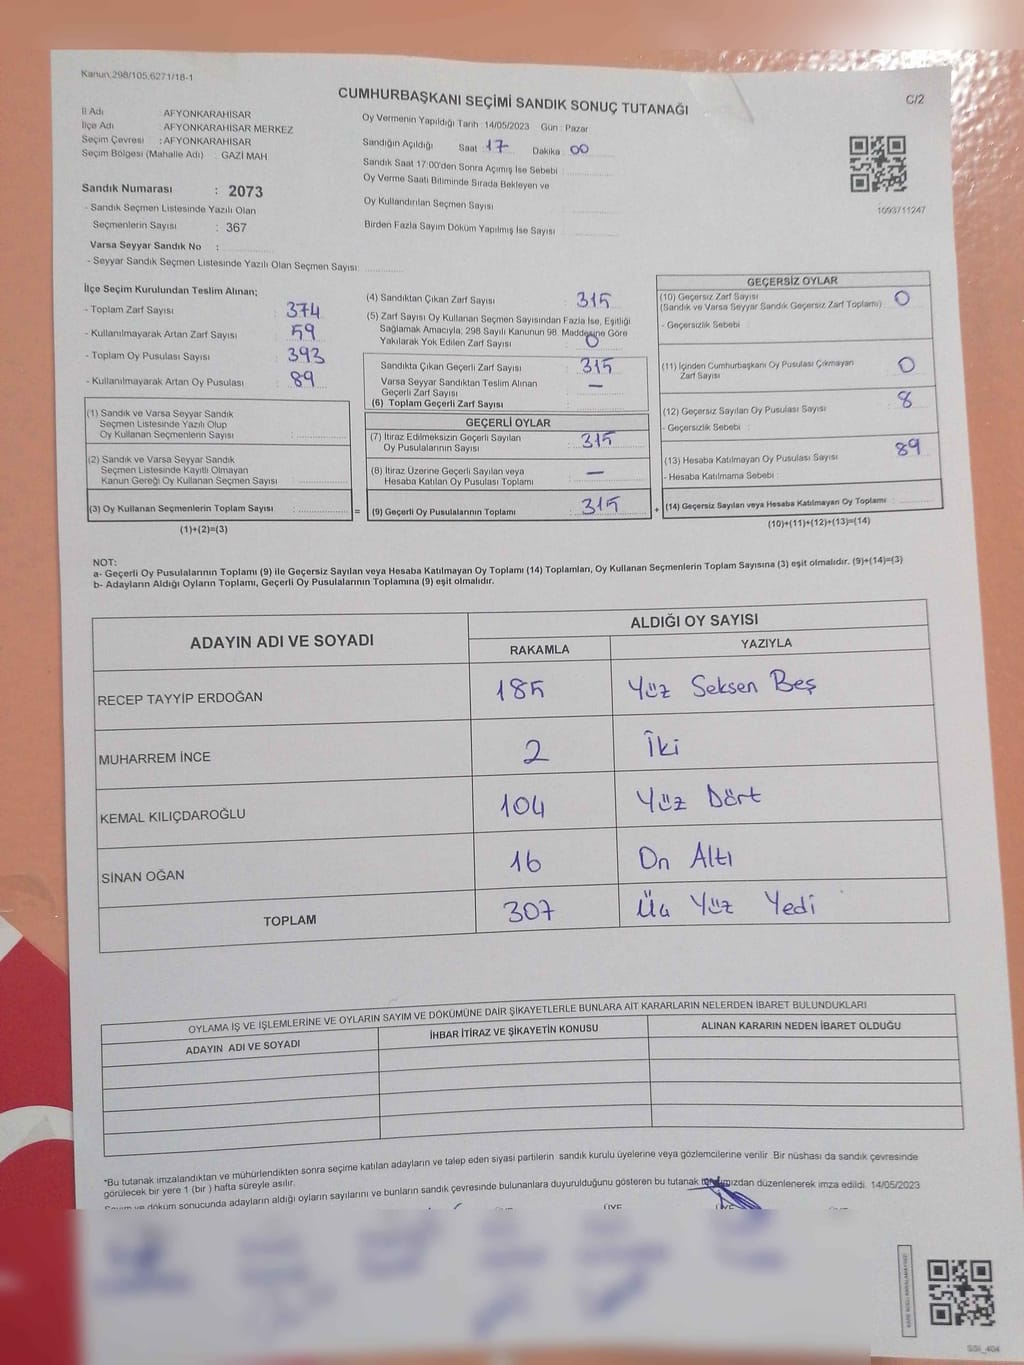 Kanun.298/105,6271/18-1
CUMHURBAŞKANI SEÇİMİ SANDIK SONUÇ TUTANAĞI
C/2
İl Adı : AFYONKARAHİSAR
İlçe Adı : AFYONKARAHİSAR MERKEZ
Seçim Çevresi : AFYONKARAHİSAR
Seçim Bölgesi (Mahalle Adı) : GAZİ MAH
Sandık Numarası : 2073
- Sandık Seçmen Listesinde Yazılı Olan
Seçmenlerin Sayısı : 367
Varsa Seyyar Sandık No :
- Seyyar Sandık Seçmen Listesinde Yazılı Olan Seçmen Sayısı:
Oy Vermenin Yapıldığı Tarih : 14/05/2023 Gün : Pazar
Sandığın Açıldığı Saat : 17 Dakika : 00
Sandık Saat 17:00'den Sonra Açımış İse Sebebi :
Oy Verme Saati Bitiminde Sırada Bekleyen ve
Oy Kullandırılan Seçmen Sayısı
Birden Fazla Sayım Döküm Yapılmış İse Sayısı
1093711247
İlçe Seçim Kurulundan Teslim Alınan;
- Toplam Zarf Sayısı : 374
- Kullanılmayarak Artan Zarf Sayısı : 59
- Toplam Oy Pusulası Sayısı : 393
- Kullanılmayarak Artan Oy Pusulası : 89
(1) Sandık ve Varsa Seyyar Sandık
Seçmen Listesinde Yazılı Olup
Oy Kullanan Seçmenlerin Sayısı :
(2) Sandık ve Varsa Seyyar Sandık
Seçmen Listesinde Kayıtlı Olmayan
Kanun Gereği Oy Kullanan Seçmen Sayısı :
(3) Oy Kullanan Seçmenlerin Toplam Sayısı :
(1)+(2)=(3)
=
(4) Sandıktan Çıkan Zarf Sayısı : 315
(5) Zarf Sayısı Oy Kullanan Seçmen Sayısından Fazla İse, Eşitliği
Sağlamak Amacıyla; 298 Sayılı Kanunun 98. Maddesine Göre
Yakılarak Yok Edilen Zarf Sayısı : 0
Sandıkta Çıkan Geçerli Zarf Sayısı : 315
Varsa Seyyar Sandıktan Teslim Alınan
Geçerli Zarf Sayısı : —
(6) Toplam Geçerli Zarf Sayısı :
GEÇERLİ OYLAR
(7) İtiraz Edilmeksizin Geçerli Sayılan
Oy Pusulalarının Sayısı : 315
(8) İtiraz Üzerine Geçerli Sayılan veya
Hesaba Katılan Oy Pusulası Toplamı : —
(9) Geçerli Oy Pusulalarının Toplamı : 315
+
GEÇERSİZ OYLAR
(10) Geçersiz Zarf Sayısı : 0
(Sandık ve Varsa Seyyar Sandık Geçersiz Zarf Toplamı)
- Geçersizlik Sebebi :
(11) İçinden Cumhurbaşkanı Oy Pusulası Çıkmayan
Zarf Sayısı : 0
(12) Geçersiz Sayılan Oy Pusulası Sayısı : 8
- Geçersizlik Sebebi :
(13) Hesaba Katılmayan Oy Pusulası Sayısı : 89
- Hesaba Katılmama Sebebi :
(14) Geçersiz Sayılan veya Hesaba Katılmayan Oy Toplamı :
(10)+(11)+(12)+(13)=(14)
NOT:
a- Geçerli Oy Pusulalarının Toplamı (9) ile Geçersiz Sayılan veya Hesaba Katılmayan Oy Toplamı (14) Toplamları, Oy Kullanan Seçmenlerin Toplam Sayısına (3) eşit olmalıdır. (9)+(14)=(3)
b- Adayların Aldığı Oyların Toplamı, Geçerli Oy Pusulalarının Toplamına (9) eşit olmalıdır.
ADAYIN ADI VE SOYADI
ALDIĞI OY SAYISI
RAKAMLA YAZIYLA
RECEP TAYYİP ERDOĞAN 185 Yüz Seksen Beş
MUHARREM İNCE 2 İki
KEMAL KILIÇDAROĞLU 104 Yüz Dört
SİNAN OĞAN 16 On Altı
TOPLAM 307 Üç Yüz Yedi
OYLAMA İŞ VE İŞLEMLERİNE VE OYLARIN SAYIM VE DÖKÜMÜNE DAİR ŞİKAYETLERLE BUNLARA AİT KARARLARIN NELERDEN İBARET BULUNDUKLARI
ADAYIN ADI VE SOYADI İHBAR İTİRAZ VE ŞİKAYETİN KONUSU ALINAN KARARIN NEDEN İBARET OLDUĞU
*Bu tutanak imzalandıktan ve mühürlendikten sonra seçime katılan adayların ve talep eden siyasi partilerin sandık kurulu üyelerine veya gözlemcilerine verilir. Bir nüshası da sandık çevresinde
görülecek bir yere 1 (bir ) hafta süreyle asılır.
Sayım ve döküm sonucunda adayların aldığı oyların sayılarını ve bunların sandık çevresinde bulunanlara duyurulduğunu gösteren bu tutanak tarafımızdan düzenlenerek imza edildi. 14/05/2023
ÜYE ÜYE
SSI_404